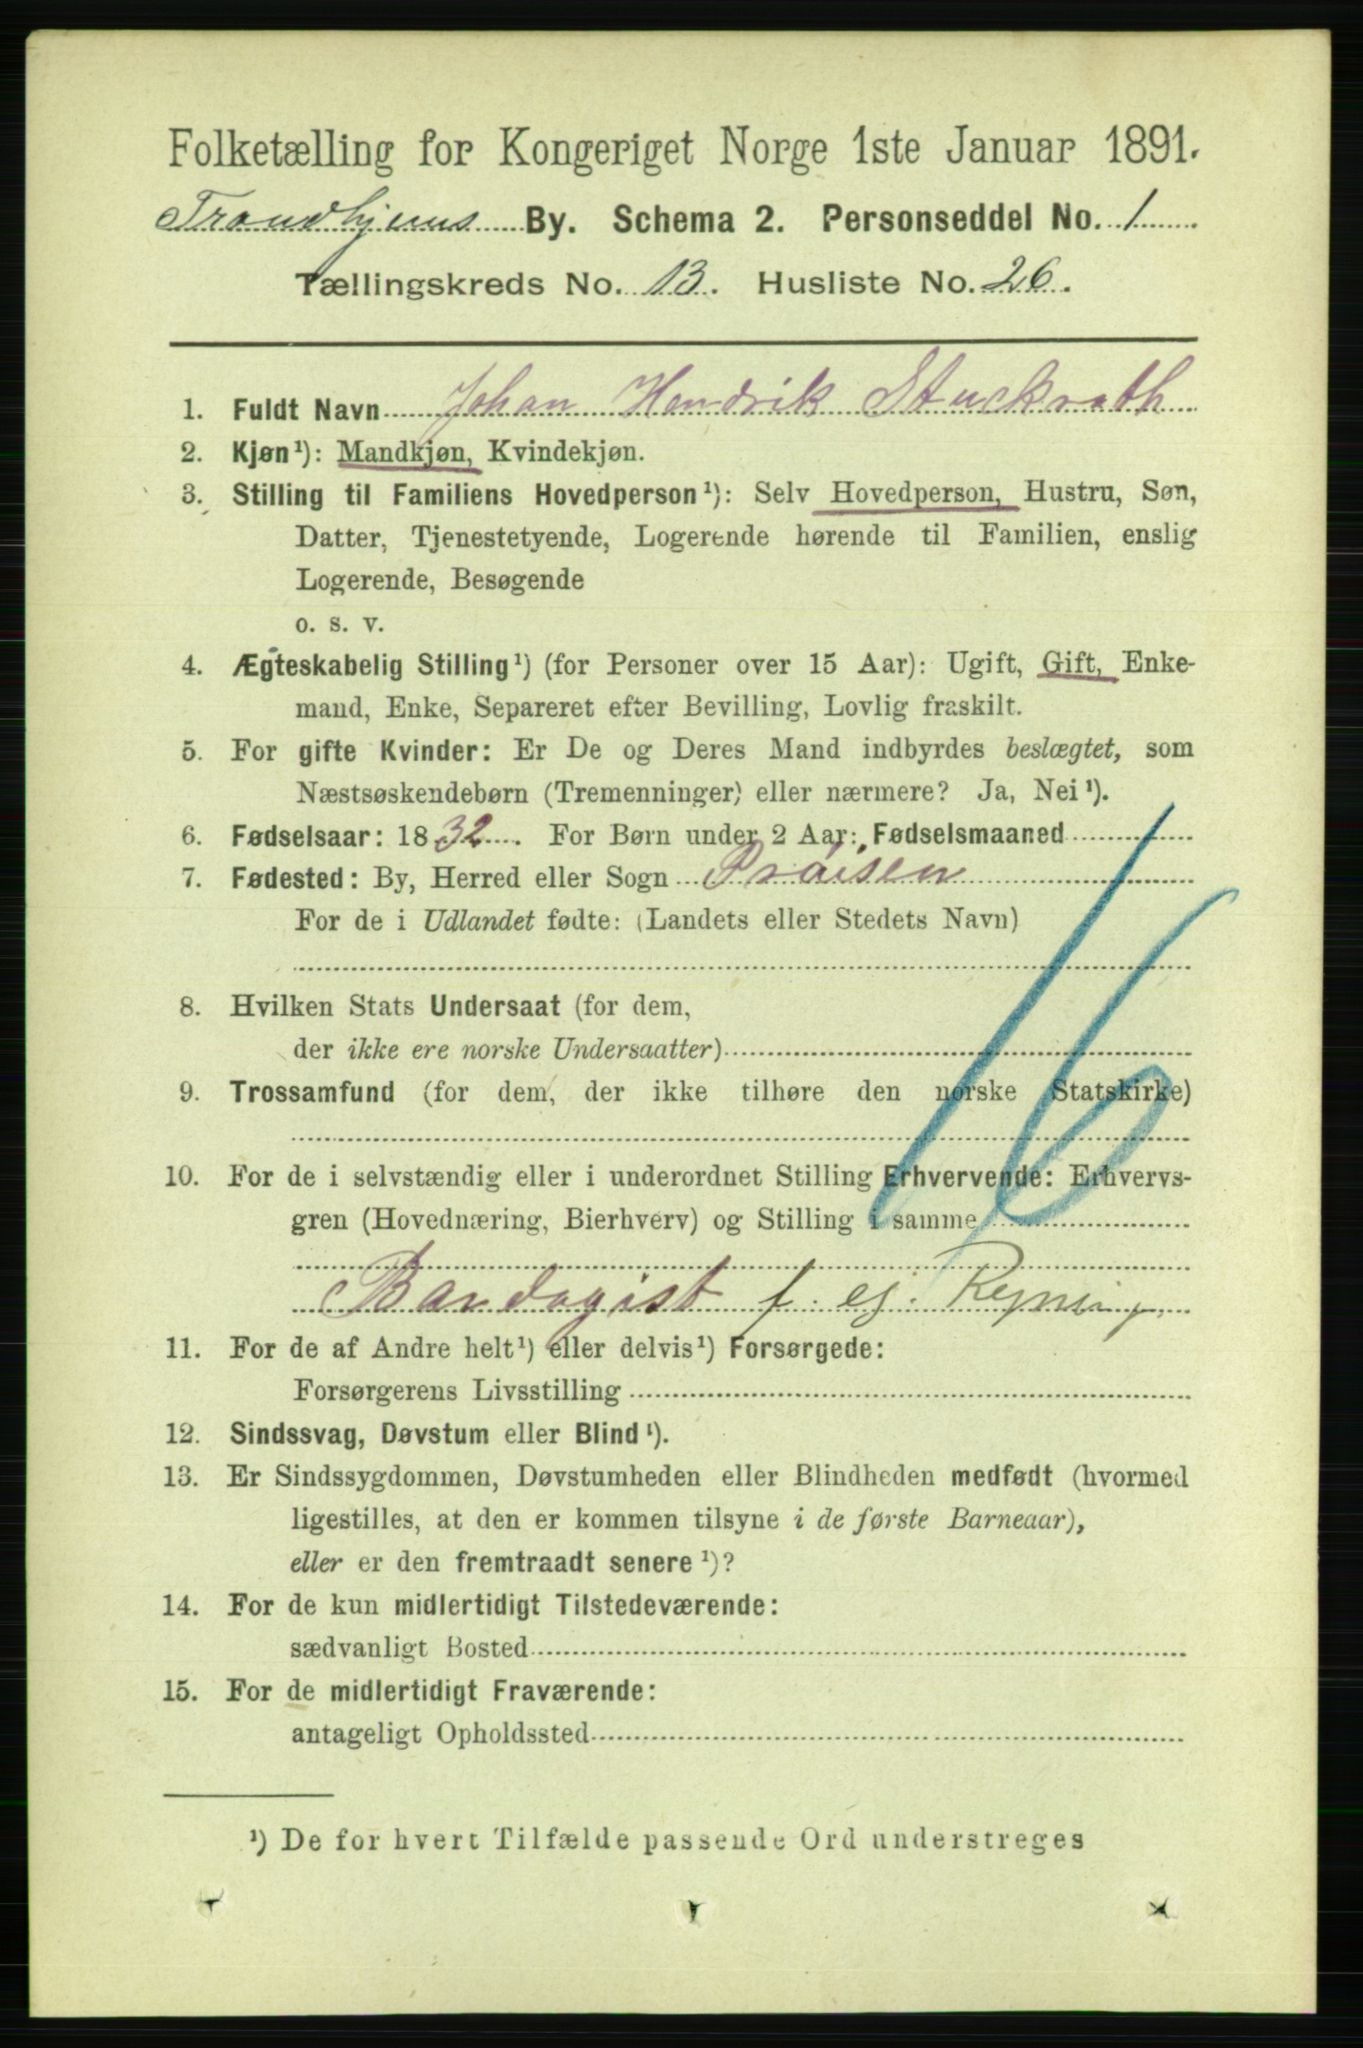 Folketælling for Kongeriget Norge 1ste Januar 1891.
Trondhjems By. Schema 2. Personseddel No. 1
Tællingskreds No. 13. Husliste No. 26.
1. Fuldt Navn Johan Hendrik Stuckrath
2. Kjøn¹): Mandkjøn, Kvindekjøn.
3. Stilling til Familiens Hovedperson¹): Selv Hovedperson, Hustru, Søn,
Datter, Tjenestetyende, Logerende hørende til Familien, enslig
Logerende, Besøgende
o. s. v.
4. Ægteskabelig Stilling¹) (for Personer over 15 Aar): Ugift, Gift, Enke-
mand, Enke, Separeret efter Bevilling, Lovlig fraskilt.
5. For gifte Kvinder: Er De og Deres Mand indbyrdes beslægtet, som
Næstsøskendebørn (Tremenninger) eller nærmere? Ja, Nei¹).
6. Fødselsaar: 1832. For Børn under 2 Aar: Fødselsmaaned
7. Fødested: By, Herred eller Sogn Prøisen
For de i Udlandet fødte: (Landets eller Stedets Navn)
8. Hvilken Stats Undersaat (for dem,
der ikke ere norske Undersaatter)
9. Trossamfund (for dem, der ikke tilhøre den norske Statskirke)
10. For de i selvstændig eller i underordnet Stilling Erhvervende: Erhvervs-
gren (Hovednæring, Bierhverv) og Stilling i samme
Bandagist f. eg. Regning
11. For de af Andre helt¹) eller delvis¹) Forsørgede:
Forsørgerens Livsstilling
12. Sindssvag, Døvstum eller Blind¹).
13. Er Sindssygdommen, Døvstumheden eller Blindheden medfødt (hvormed
ligestilles, at den er kommen tilsyne i de første Barneaar),
eller er den fremtraadt senere¹)?
14. For de kun midlertidigt Tilstedeværende:
sædvanligt Bosted
15. For de midlertidigt Fraværende:
antageligt Opholdssted
¹) De for hvert Tilfælde passende Ord understreges
16